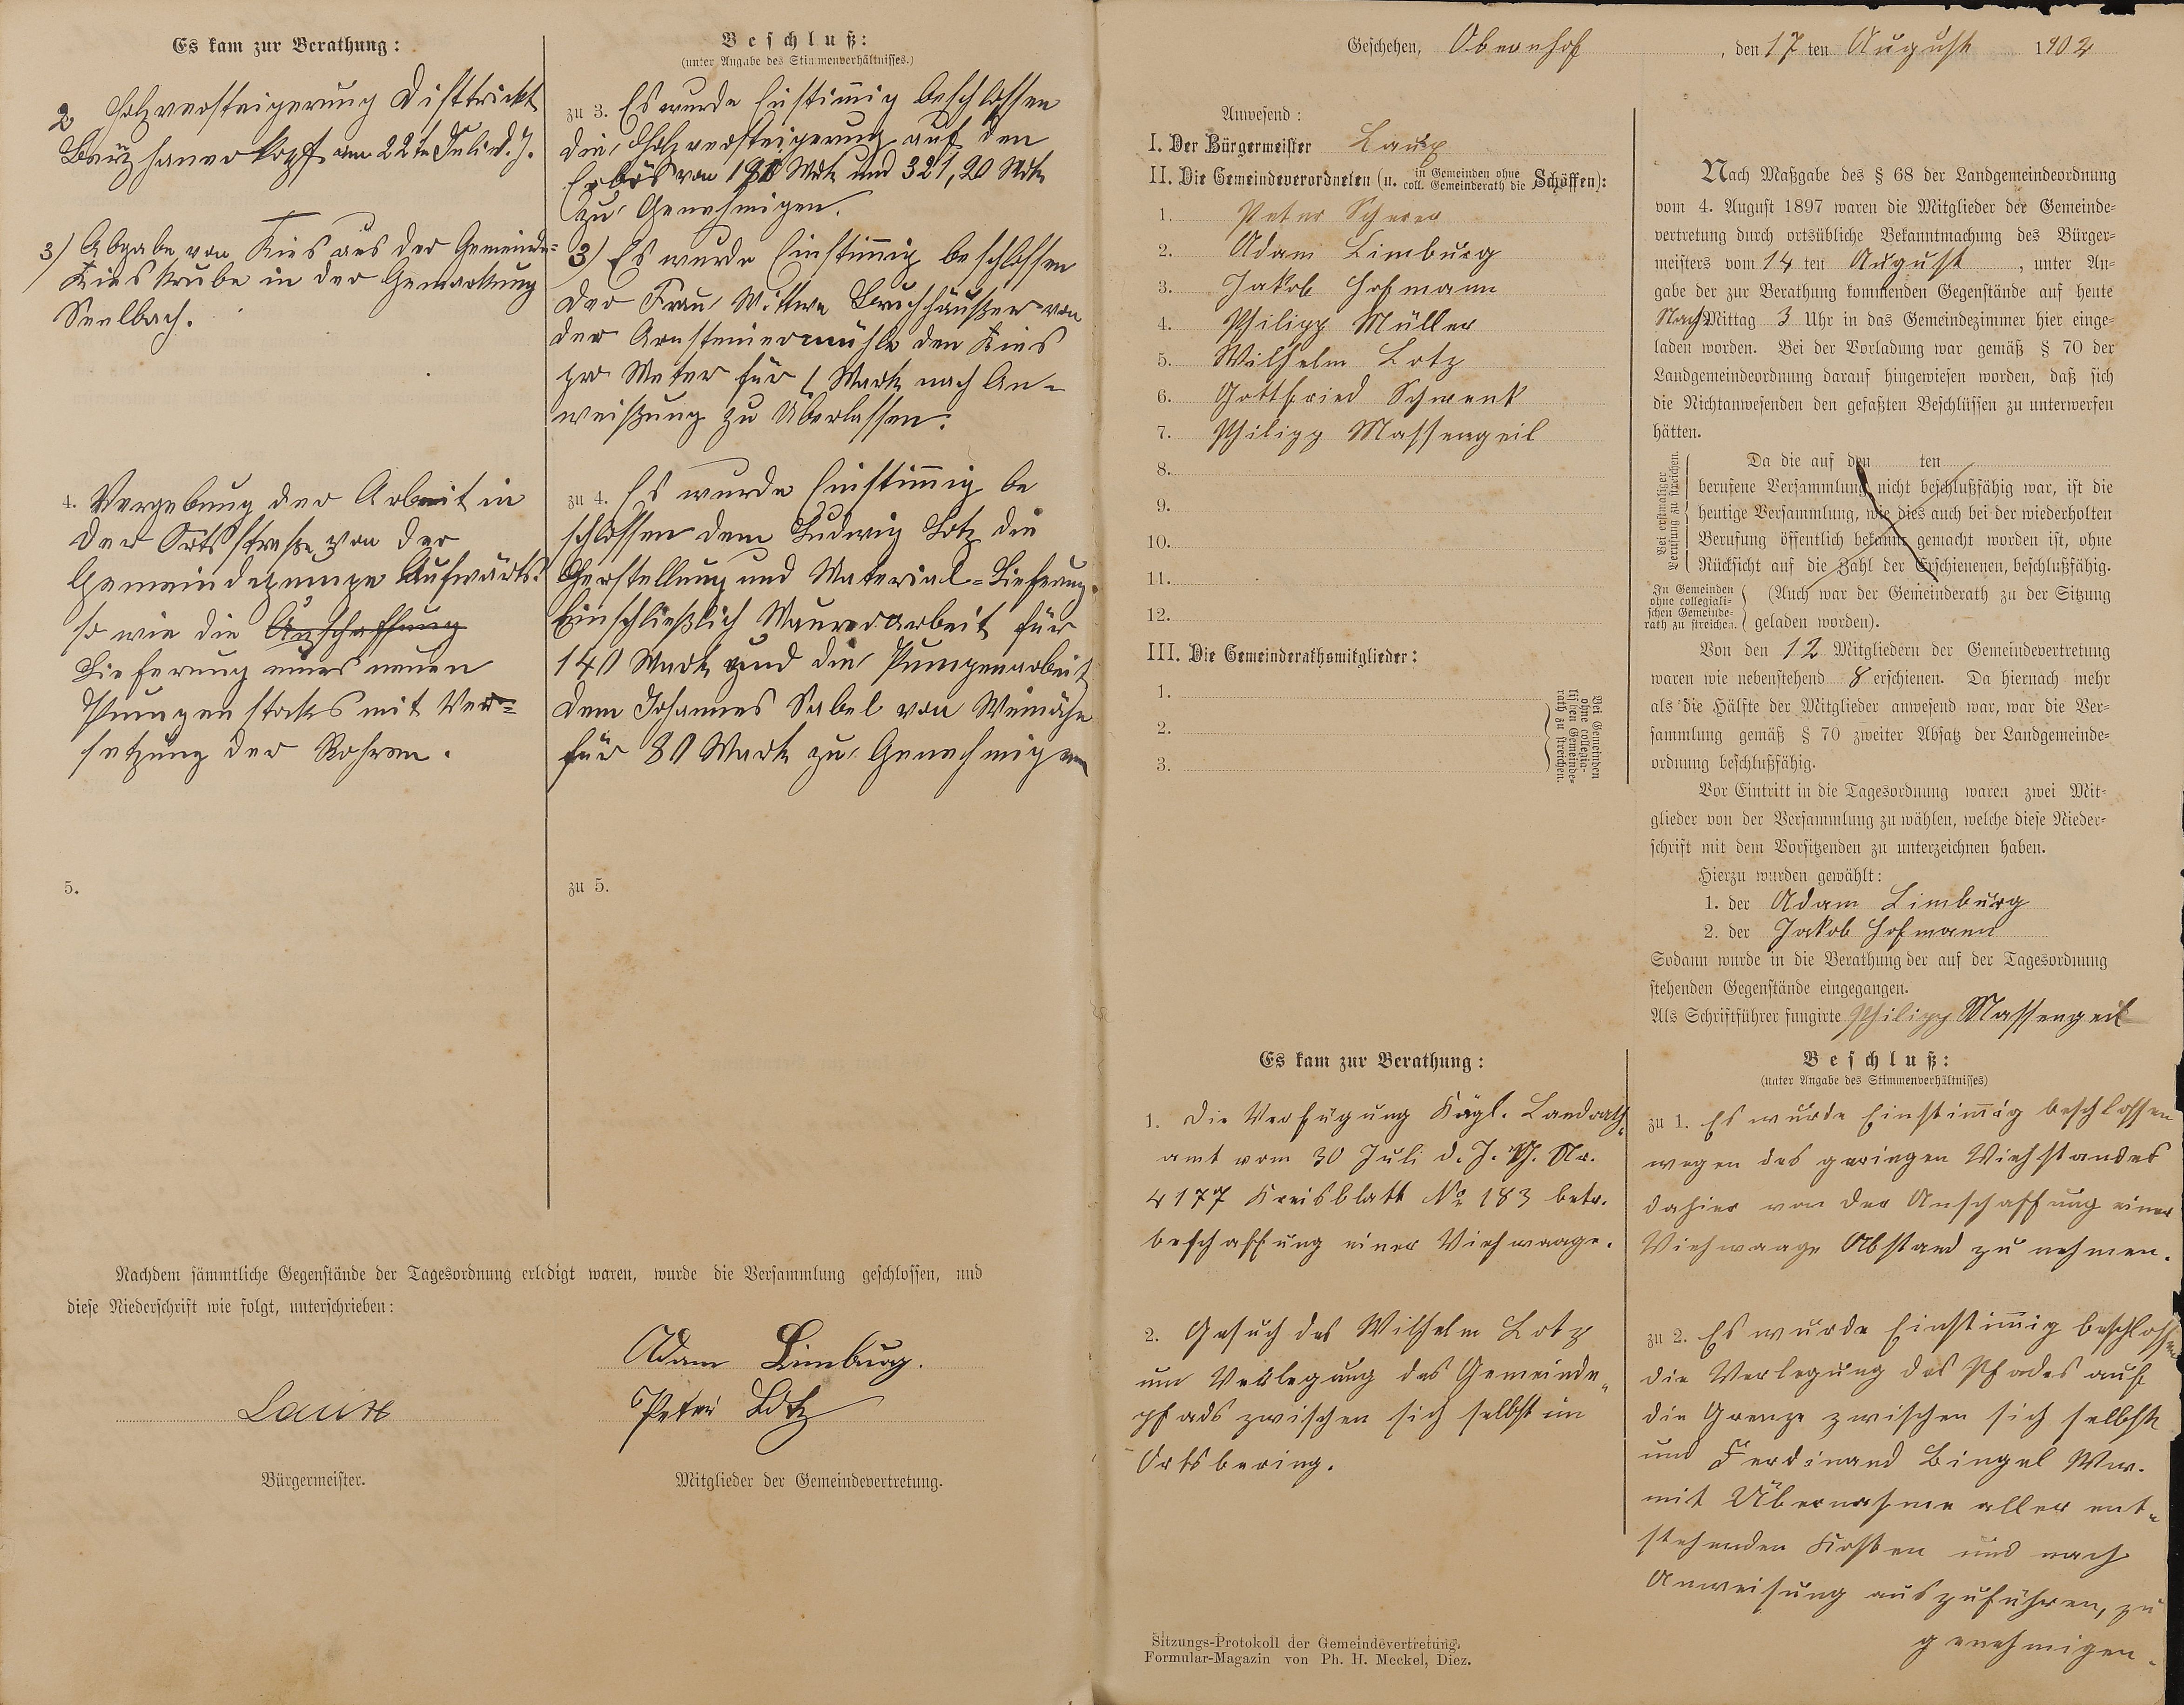 Es kam zur Berathung:
2 Holzversteigerung Disttrickt
am 22ten Juli d. J.
3) Abgabe von Kies aus der Gemeinde=
Kieskrube in der Gemarkung
Seelbach.
4. Vergebung der Arbeit in
der Ortsstraße von der
Gemeindepumpe Aufwärts.
so wie die Anschaffung
Lieferung eines neuen
Pumpenstocks mit Ver=
setzung der Rohren.
5.
Beschluß:
(unter Angabe des Stimmenverhältnisses.)
zu 3. Es wurde Einstimmig beschlossen
die Holzversteigerung auf den
Erlös von Mark und 321,20 Mark
zu Genehmigen.
3) Es wurde Einstimmig beschlossen
der Frau Wittwe Bruchhäußer von
der Arnsteinermühle den Kies
pro Meter für 1 Mark nach An=
weißung zu Überlassen.
zu 4. Es wurde Einstimmig be
schlossen dem Ludwig Lotz die
Herstellung und Material=Lieferung
Einschließlich Maurerarbeit für
140 Mark und die Pumpenarbeit
dem Johannes Sabel von Weinähr
für 80 Mark zu Genehmigen
zu 5.
Nachdem sämmtliche Gegenstände der Tagesordnung erledigt waren, wurde die Versammlung geschlossen, und
diese Niederschrift wie folgt, unterschrieben:
Adam Limburg.
Peter Lotz
Laux
Bürgermeister.
Mitglieder der Gemeindevertretung.
Geschehen, Obernhof, den 17ten August 1902
Anwesend:
I. Der Bürgermeister Laux
II. Die Gemeindeverordneten (u. in Gemeinden ohne coll. Gemeinderath die Schöffen):
1. Peter Scherer
2. Adam Limburg
3. Jakob Hofmann
4. Philipp Müller
5. Wilhelm Lotz
6. Gottfried Schwenk
7. Philipp Massengeil
8.
9.
10.
11.
12.
III. Die Gemeinderathsmitglieder:
1.
2.
3.
Bei Gemeinden
ohne collegia-
lischen Gemeinde-
rath zu streichen.
Nach Maßgabe des § 68 der Landgemeindeordnung
vom 4. August 1897 waren die Mitglieder der Gemeinde=
vertretung durch ortsübliche Bekanntmachung des Bürger=
meisters vom 14ten August, unter An=
gabe der zur Berathung kommenden Gegenstände auf heute
NachMittag 3 Uhr in das Gemeindezimmer hier einge=
laden worden. Bei der Vorladung war gemäß § 70 der
Landgemeindeordnung darauf hingewiesen worden, daß sich
die Nichtanwesenden den gefaßten Beschlüssen zu unterwerfen
hätten.
Bei erstmaliger
Berufung zu streichen.
Da die auf den ten
berufene Versammlung nicht beschlußfähig war, ist die
heutige Versammlung, wie dies auch bei der wiederholten
Berufung öffentlich bekannt gemacht worden ist, ohne
Rücksicht auf die Zahl der Erschienenen, beschlußfähig.
In Gemeinden
ohne collegiali-
schen Gemeinde-
rath zu streichen.
(Auch war der Gemeinderath zu der Sitzung
geladen worden).
Von den 12 Mitgliedern der Gemeindevertretung
waren wie nebenstehend 8 erschienen. Da hiernach mehr
als die Hälfte der Mitglieder anwesend war, war die Ver=
sammlung gemäß § 70 zweiter Absatz der Landgemeinde=
ordnung beschlußfähig.
Vor Eintritt in die Tagesordnung waren zwei Mit=
glieder von der Versammlung zu wählen, welche diese Nieder=
schrift mit dem Vorsitzenden zu unterzeichnen haben.
Hierzu wurden gewählt:
1. der Adam Limburg
2. der Jakob Hofmann
Sodann wurde in die Berathung der auf der Tagesordnung
stehenden Gegenstände eingegangen.
Als Schriftführer fungirte Philipp Massengeil
Es kam zur Berathung:
1. Die Verfügung Kögl. Landrath=
amt vom 30 Juli d. J. Nr.
4177 Kreisblatt No 183 betr.
beschaffung einer Viehwaage.
2. Gesuch des Wilhelm Lotz
um Verlegung des Gemeinde=
pfads zwischen sich selbst im
Ortsbering.
Beschluß:
(unter Angabe des Stimmenverhältnisses)
zu 1. Es wurde Einstimmig beschlossen
wegen des geringen Viehstandes
dahier von der Anschaffung einer
Viehwaage Abstand zu nehmen.
zu 2. Es wurde Einstimmig beschlossen
die Verlegung des Pfades auf
die Grenze zwischen sich selbst
und Ferdinand Bingel Wwe.
mit Übernahme aller ent=
stehenden Kosten und nach
Anweisung auszuführen, zu
genehmigen.
Sitzungs-Protokoll der Gemeindevertretung.
Formular-Magazin von Ph. H. Meckel, Diez.